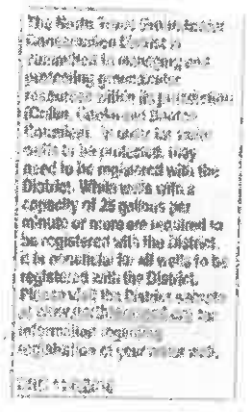 The North Texas Groundwater
Conservation District is
committed to
protecting groundwater
resources within its jurisdiction
(Collin, Cooke and Denton
Counties). In order for water
wells to be protected, they
need to be registered with the
District. While wells with a
capacity of 25 gallons per
minute or more are required to
be registered with the District,
it is beneficial for all wells to be
registered with the District.
Please visit the District website
at for
information regarding
registration of your water well.